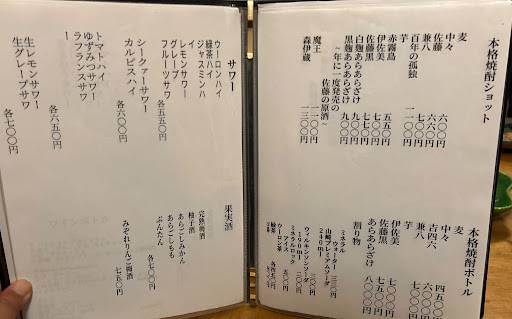 本格焼酎ショット
麦
中々 六〇〇円
佐藤 六六〇円
兼八 七七〇円
百年の孤独 一一〇〇円
芋
赤霧島 五五〇円
伊佐美 七七〇円
佐藤黒 七七〇円
白麹あらあらざけ 九〇〇円
黒麹あらあらざけ 九〇〇円
~年に一度発売の
佐藤の原酒~
魔王 一一〇〇円
森伊蔵 一三〇〇円
本格焼酎ボトル
麦
中々
吉四六
兼八
芋
伊佐美
佐藤黒
あらあらざけ
割り物
ミネラルウォーター 三三〇円
山崎プレミアムソーダ
240ml
ウィルキンソンソーダ
190ml
ミネラルロック
ウーロン茶
緑茶
サワー
ウーロンハイ
緑茶ハイ
ジャスミンハイ
レモンサワー
グレープ
フルーツサワ
各五五〇円
シークァーサワー
カルピスハイ
各六〇〇円
トマトハイ
ゆずみつサワー
ラフランスサワ
各六五〇円
生レモンサワー
生グレープサワ
各七〇〇円
果実酒
完熟梅酒
あらごしみかん
柚子酒
あらごしもも
ぶんたん
各七〇〇円
みぞれりんご梅酒
七五〇円